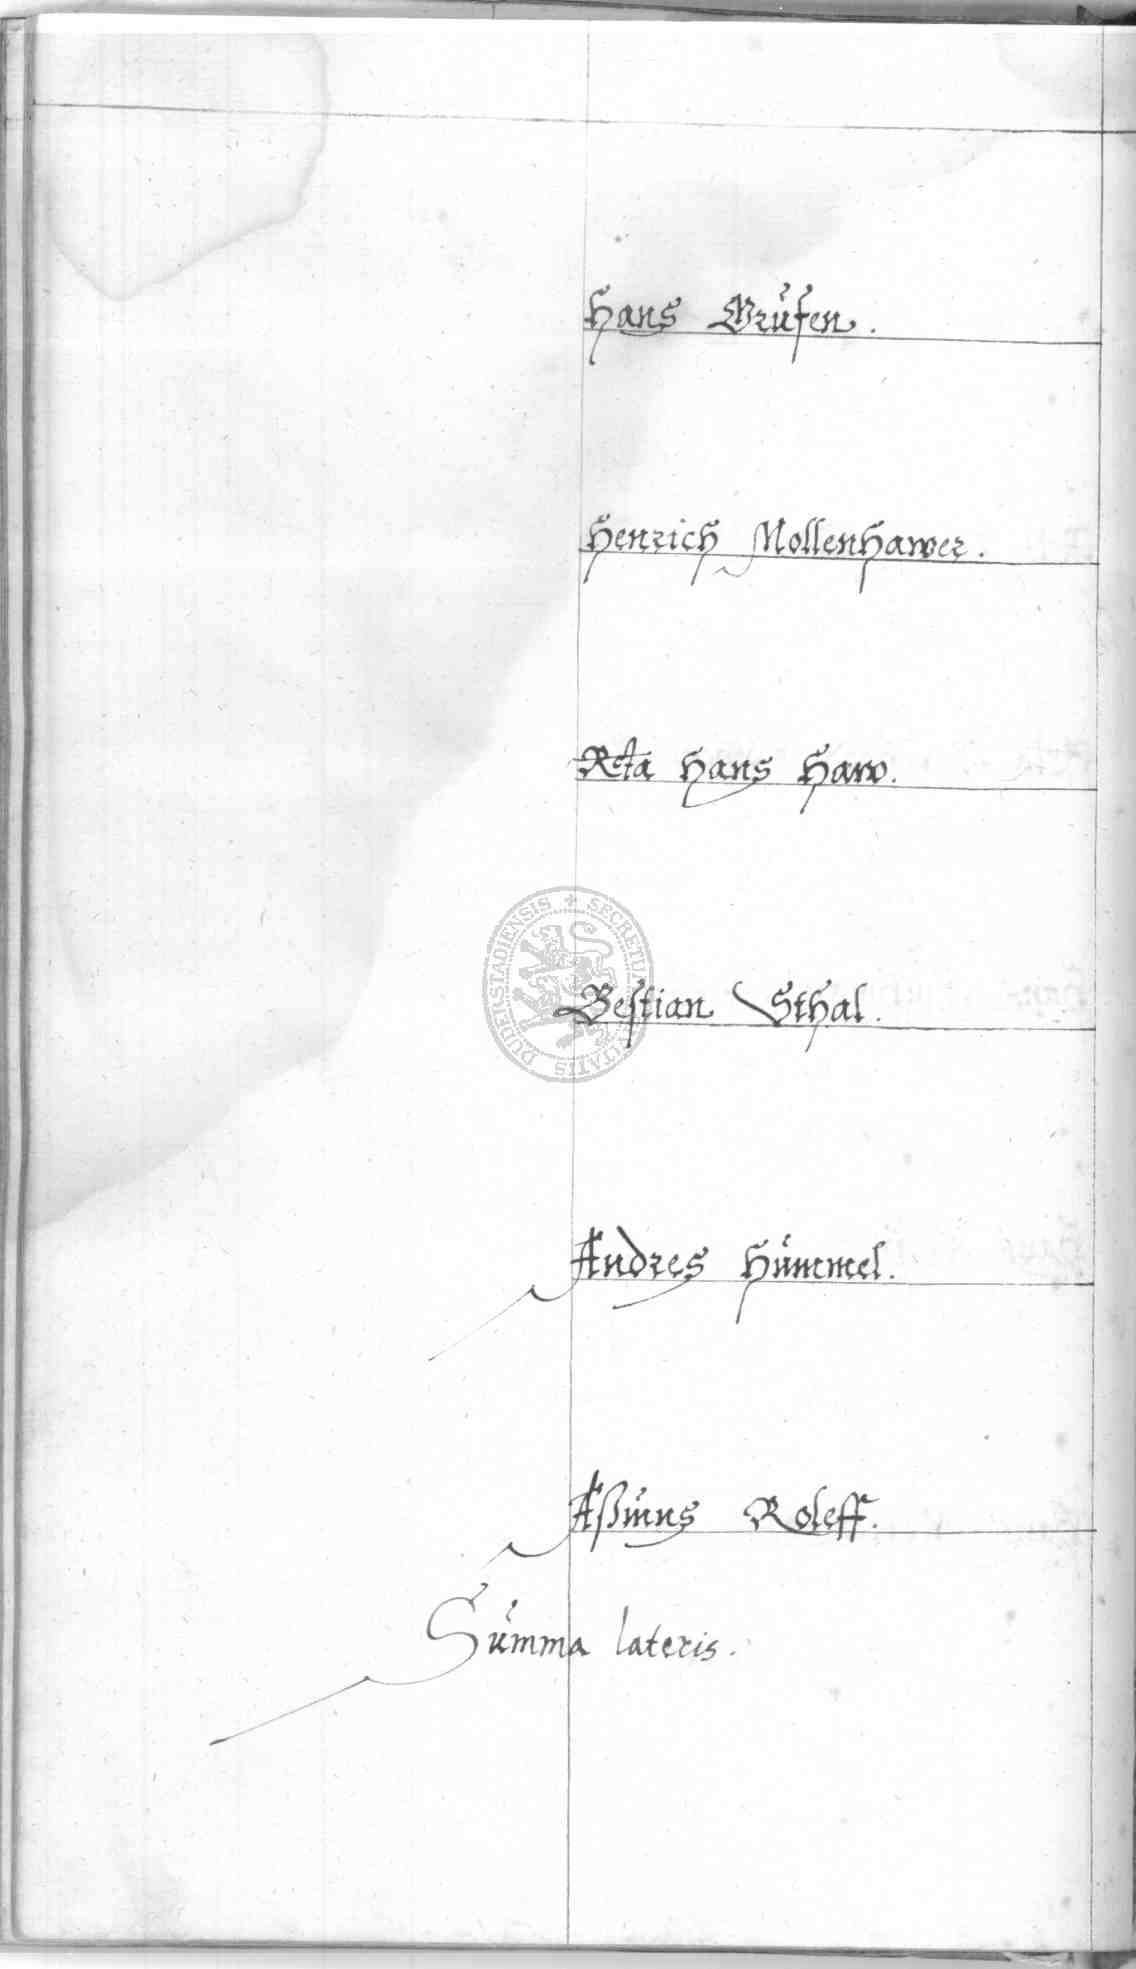 Hans Grüsen.
Henrich Mollenhawer.
Rcta Hans Haw.
SECRETUM CIVITATIS DUDERSTADIENSIS
Bestian Sthal.
Andres Hümmel.
Aßmus Roleff.
Sümma lateris.